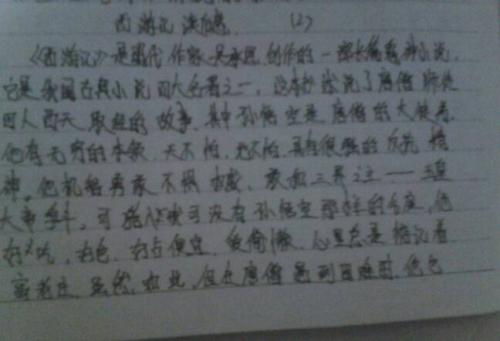 西游记读后感 (2)
《西游记》是明代作家吴承恩创作的一部长篇神话小说,
它是我国古典小说四大名著之一,这本书叙说了唐僧师徒
四人西天取经的故事.其中孙悟空是唐僧的大徒弟.
他有无穷的本领,天不怕,地不怕.具有很强的反抗精
神,他机智勇敢不惧,敢和三界之主——玉皇
大帝斗,可猪八戒可没有孙悟空那样的气度,他
好吃,好色,好占便宜,爱偷懒.心里总是惦记着
高老庄.虽然,如此,但在唐僧遇到困难时,他也